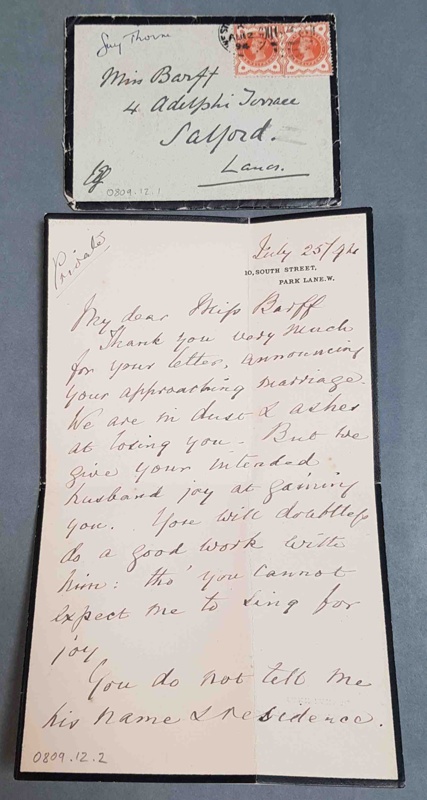 Guy Thorne
Miss Barff
4 Adelphi Terrace
Salford.
Lancs.
0809.12.1
Private
July 25/94
10, SOUTH STREET,
PARK LANE. W.
My dear Miss Barff
Thank you very much
for your letter, announcing
your approaching marriage.
We are in dust & ashes
at losing you. But we
give your intended
husband joy at gaining
you. You will doubtless
do a good work with
him: tho' you cannot
expect me to sing for
joy
You do not tell me
his name & residence.
0809.12.2